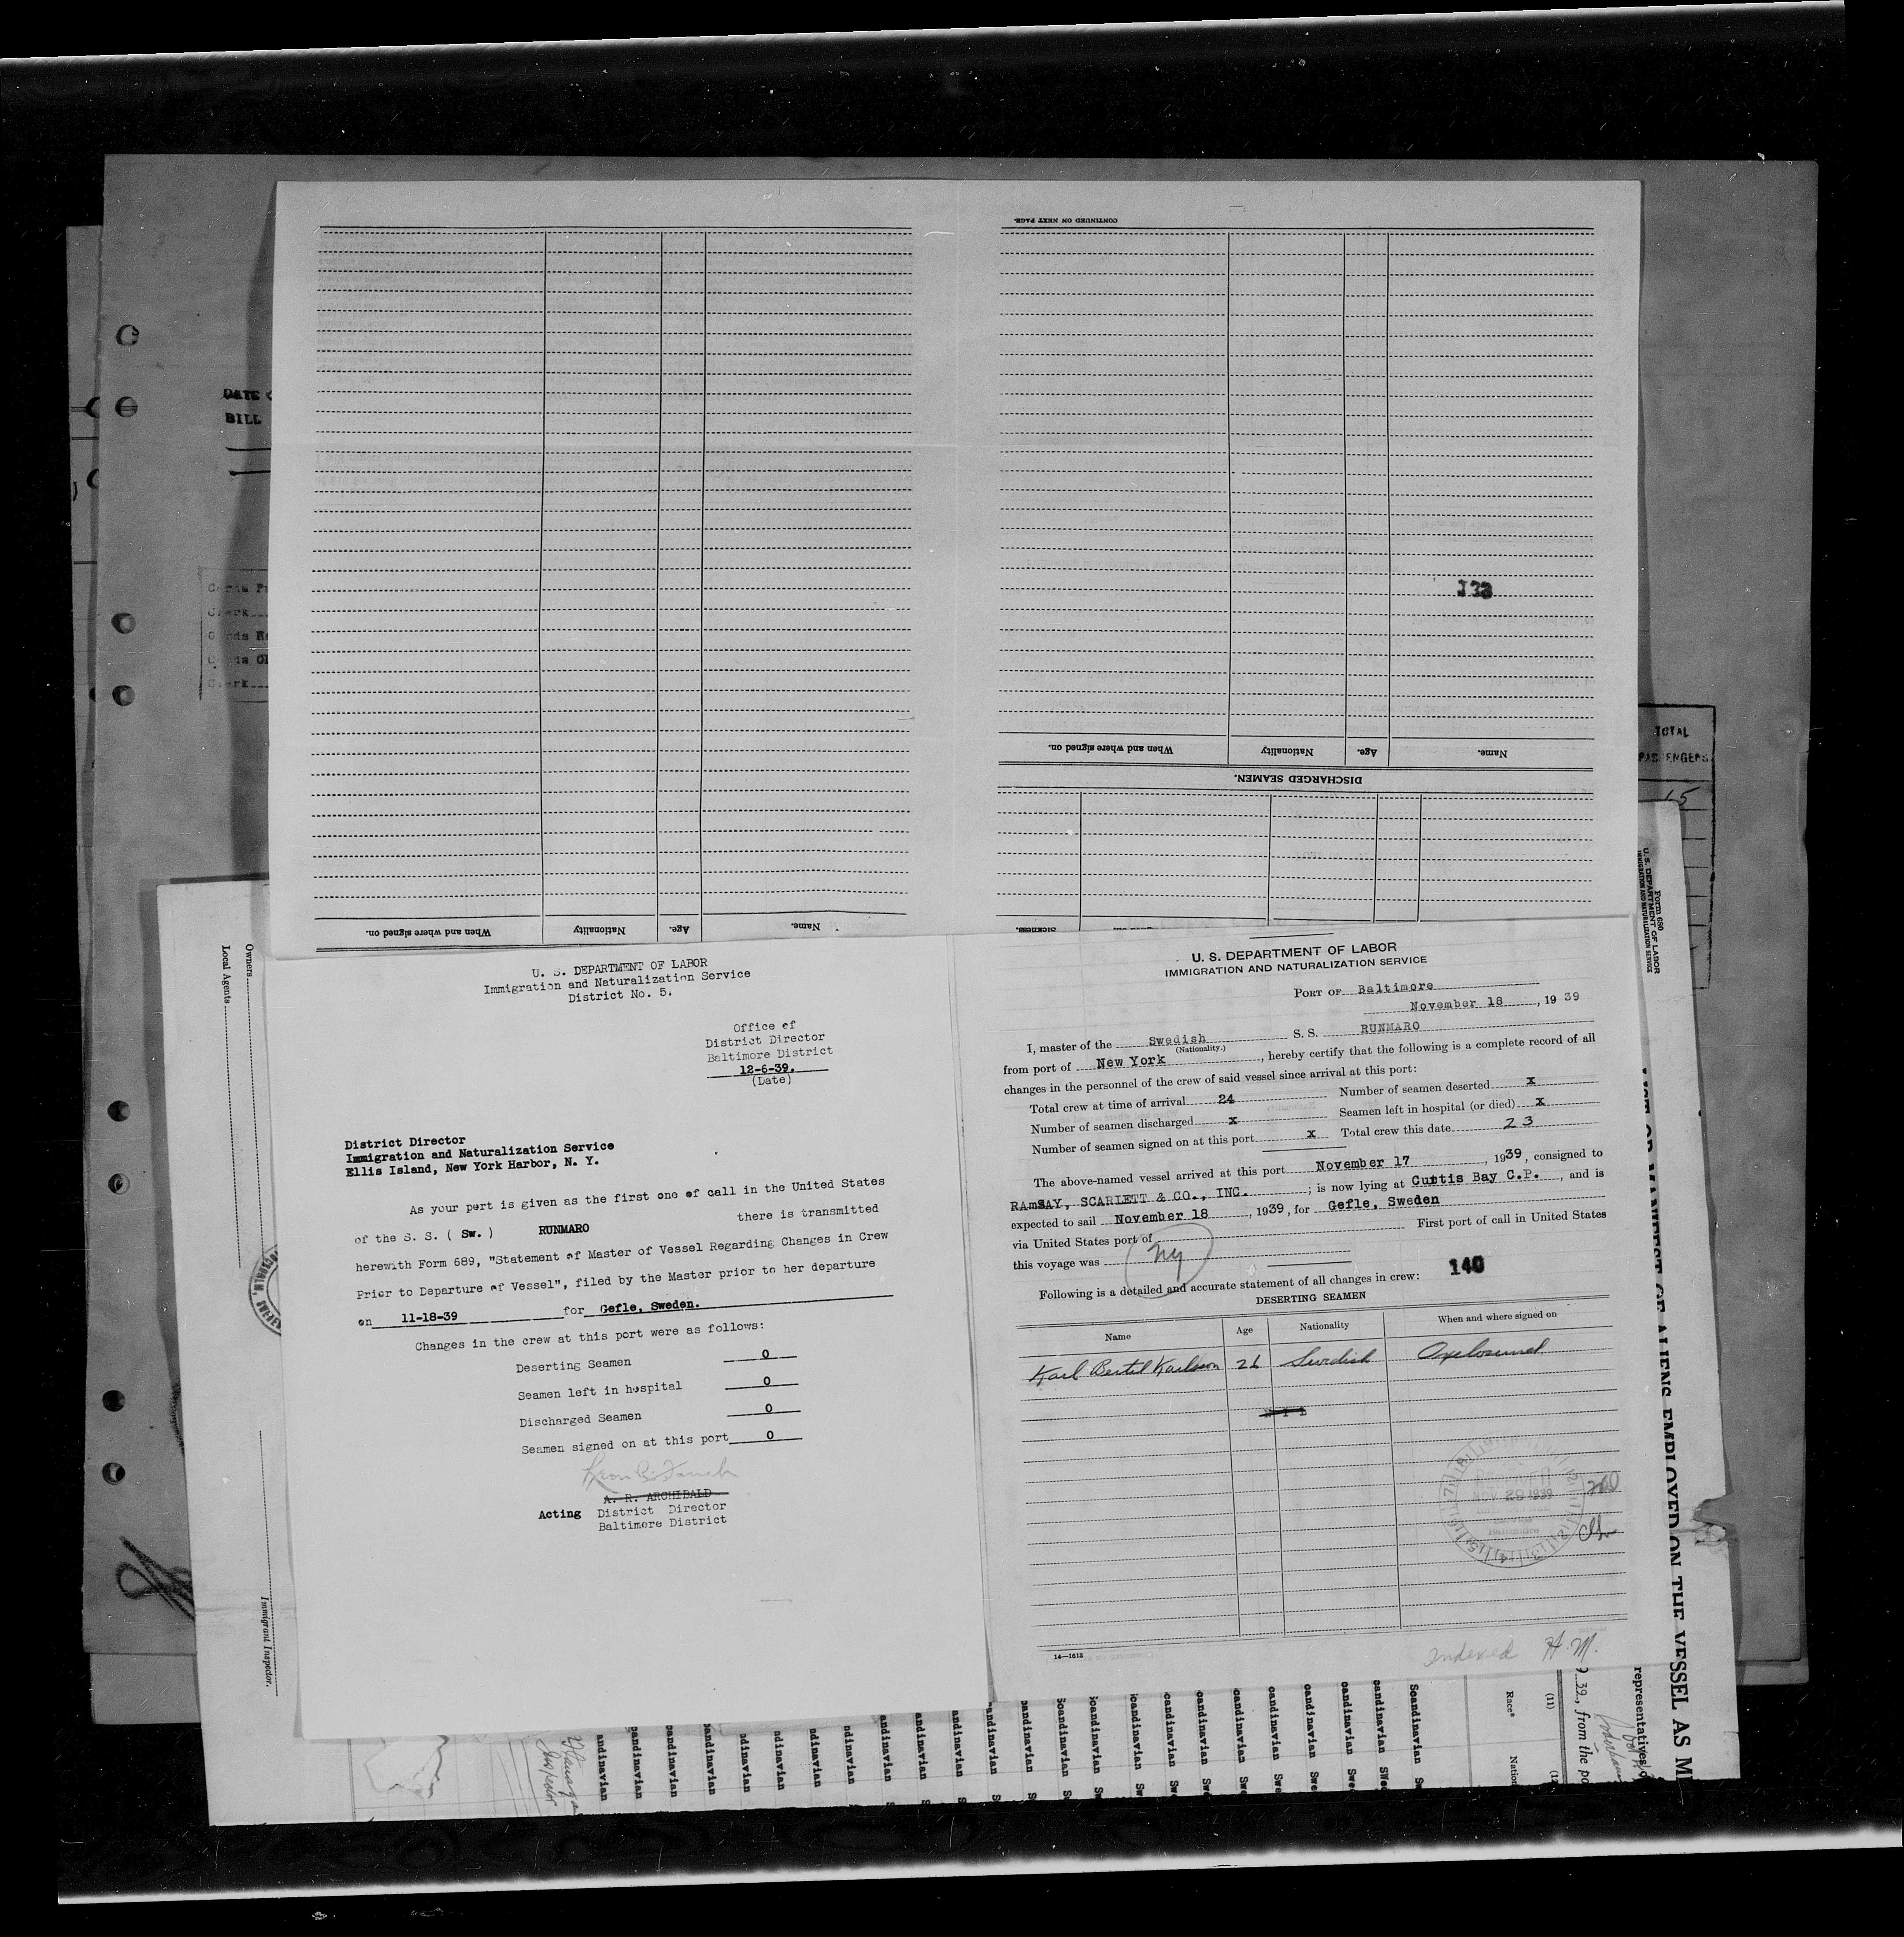 CONTINUED ON NEXT PAGE.
133
When and where signed on. Nationality Age. Name.
DISCHARGED SEAMEN.
When and where signed on. Nationality Age. Name.
Sickness.
DATE
BILL
Clerk
TOTAL
PASSENGERS
15
Form 680
U. S. DEPARTMENT OF LABOR
IMMIGRATION AND NATURALIZATION SERVICE
Owners
Local Agents
Immigrant Inspector.
U. S. DEPARTMENT OF LABOR
Immigration and Naturalization Service
District No. 5.
Office of
District Director
Baltimore District
12-6-39.
(Date)
District Director
Immigration and Naturalization Service
Ellis Island, New York Harbor, N. Y.
As your port is given as the first one of call in the United States
of the S. S. ( Sw. ) RUNMARO there is transmitted
herewith Form 689, "Statement of Master of Vessel Regarding Changes in Crew
Prior to Departure of Vessel", filed by the Master prior to her departure
on 11-18-39 for Gefle, Sweden.
Changes in the crew at this port were as follows:
Deserting Seamen 0
Seamen left in hospital 0
Discharged Seamen 0
Seamen signed on at this port 0
A. R. ARCHIBALD
Acting District Director
Baltimore District
U. S. DEPARTMENT OF LABOR
IMMIGRATION AND NATURALIZATION SERVICE
PORT OF Baltimore
November 18, 1939
I, master of the Swedish S. S. RUNMARO
(Nationality.)
from port of New York, hereby certify that the following is a complete record of all
changes in the personnel of the crew of said vessel since arrival at this port:
Total crew at time of arrival 24 Number of seamen deserted x
Number of seamen discharged x Seamen left in hospital (or died) x
Number of seamen signed on at this port x Total crew this date 23
The above-named vessel arrived at this port November 17, 1939, consigned to
RAmSAY, SCARLETT & CO., INC. ; is now lying at Curtis Bay C.P., and is
expected to sail November 18, 1939, for Gefle, Sweden
via United States port of First port of call in United States
this voyage was NY
Following is a detailed and accurate statement of all changes in crew: 140
DESERTING SEAMEN
Name Age Nationality When and where signed on
Karl Bertil Karlsson 26 Swedish Oxelosund
NOV 28 1939
Baltimore
14—1613
Indexed H. M.
LIST OR MANIFEST OF ALIENS EMPLOYED ON THE VESSEL AS M
representatives of
39, from the po
(11)
Race*
Scandinavian
Inspector